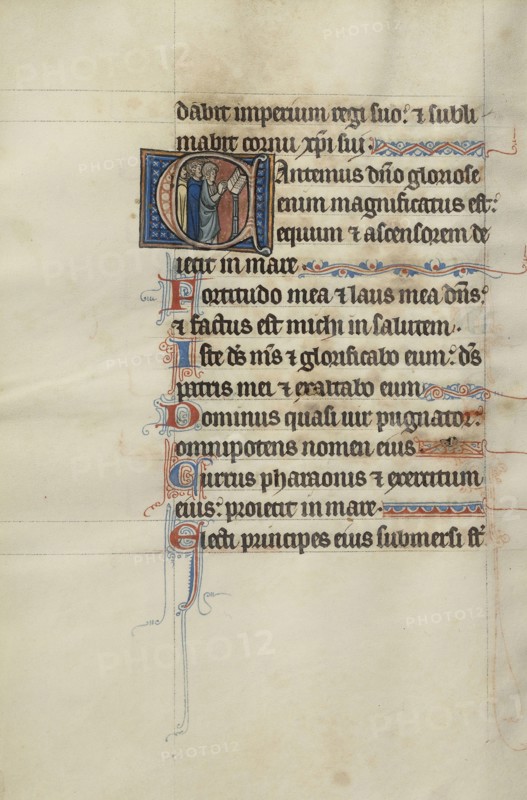 dabit imperium regi suo: ⁊ subli
mabit cornu xp̄i sui
Cantemus dn̄o gloriose
enim magnificatus est:
equum ⁊ ascensorem de
iecit in mare.
Fortitudo mea ⁊ laus mea dn̄s:
⁊ factus est michi in salutem.
Iste ds̄ m̄s ⁊ glorificabo eum: ds̄
patris mei ⁊ exaltabo eum
Dominus quasi uir pugnator:
omnipotens nomen eius.
Currus pharaonis ⁊ exercitum
eius: proiecit in mare.
Electi principes eius submersi st̄
PHOTO12